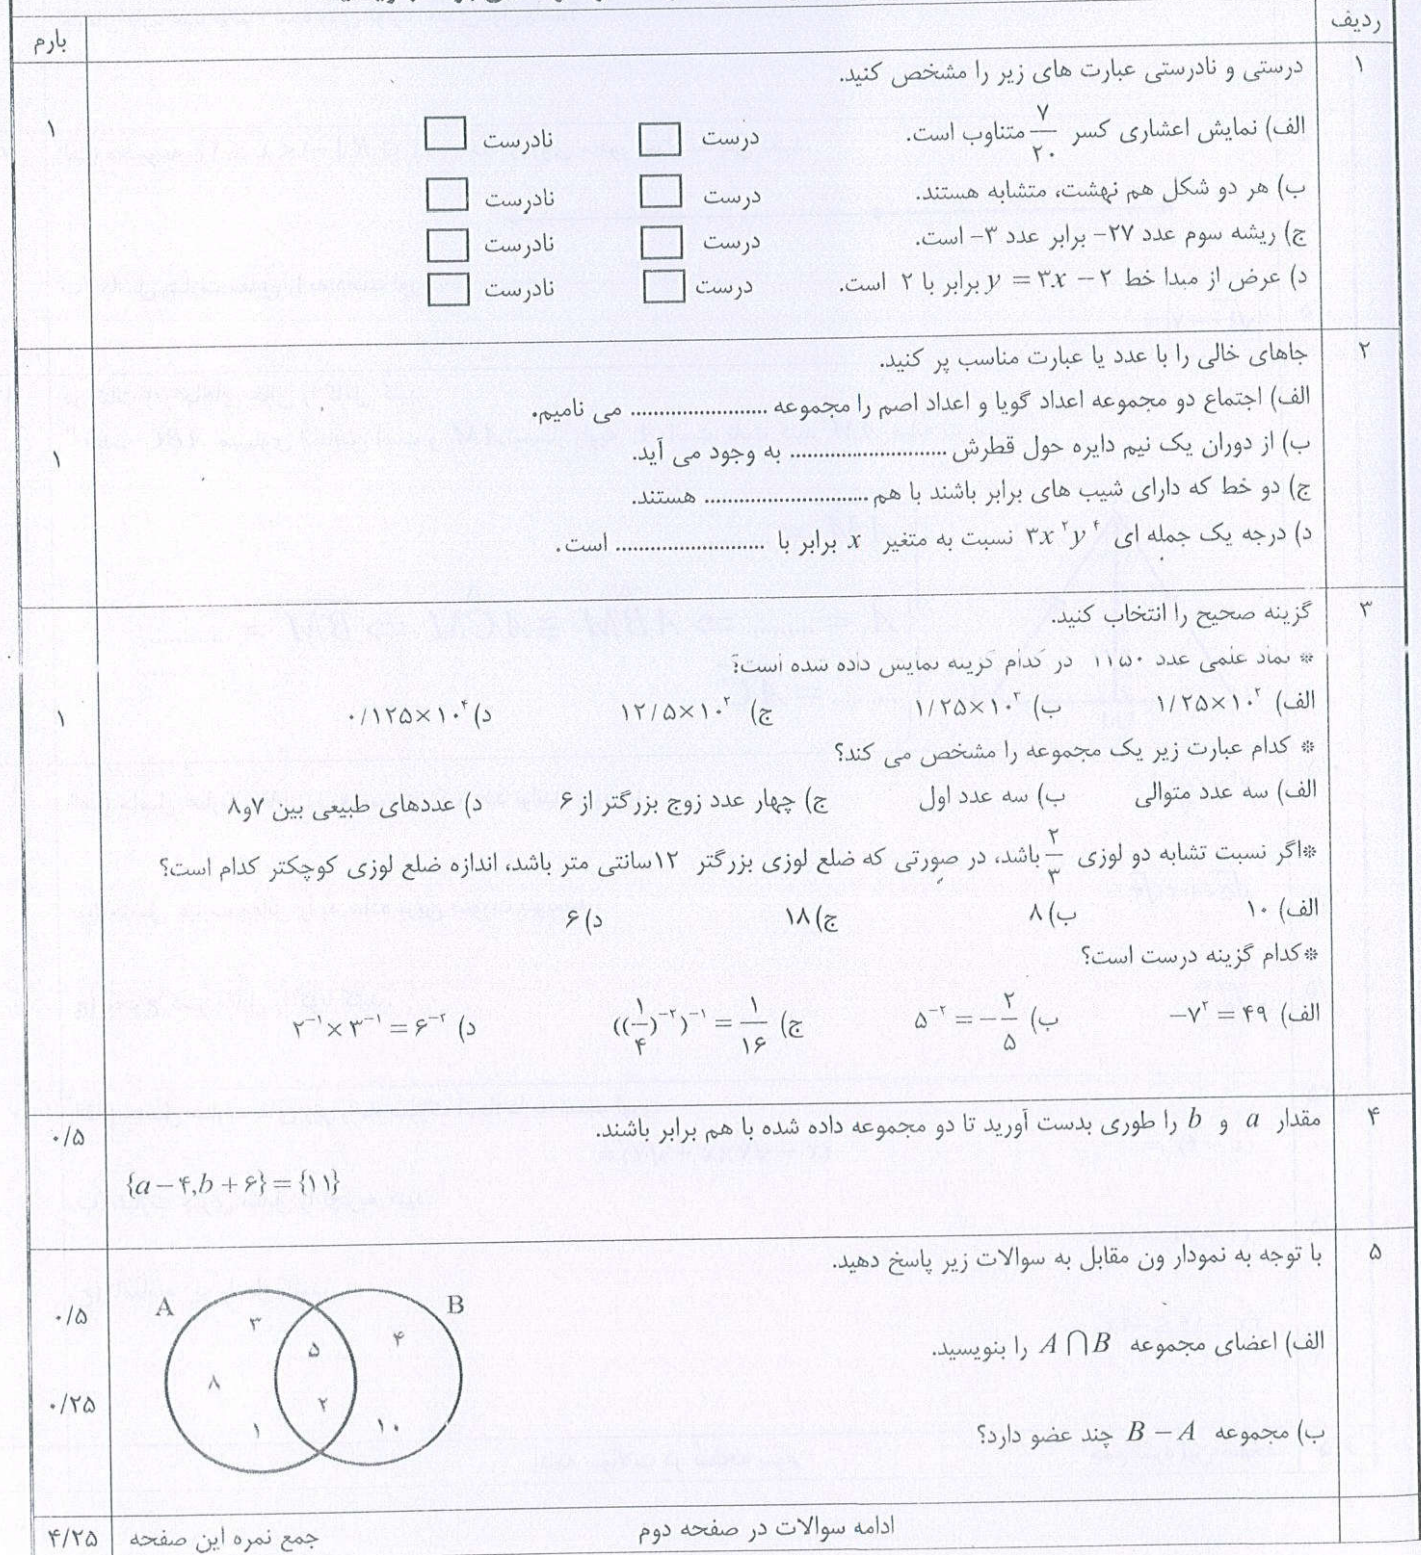 ردیف
بارم
۱
درستی و نادرستی عبارت های زیر را مشخص کنید.
الف) نمایش اعشاری کسر ۷/۲۰ متناوب است. درست نادرست
۱
ب) هر دو شکل هم نهشت، متشابه هستند. درست نادرست
ج) ریشه سوم عدد ۲۷- برابر عدد ۳- است. درست نادرست
د) عرض از مبدا خط y = ۳x − ۲ برابر با ۲ است. درست نادرست
۲
جاهای خالی را با عدد یا عبارت مناسب پر کنید.
الف) اجتماع دو مجموعه اعداد گویا و اعداد اصم را مجموعه ........................ می نامیم.
ب) از دوران یک نیم دایره حول قطرش ........................... به وجود می آید.
۱
ج) دو خط که دارای شیب های برابر باشند با هم ............................ هستند.
د) درجه یک جمله ای ۳x^۲y^۴ نسبت به متغیر x برابر با .......................... است.
۳
گزینه صحیح را انتخاب کنید.
* نماد علمی عدد در کدام گزینه نمایش داده شده است؟
الف) ۱/۲۵×۱۰^۲ ب) ۱/۲۵×۱۰^۳ ج) ۱۲/۵×۱۰^۲ د) ۰/۱۲۵×۱۰^۴
۱
* کدام عبارت زیر یک مجموعه را مشخص می کند؟
الف) سه عدد متوالی ب) سه عدد اول ج) چهار عدد زوج بزرگتر از ۶ د) عددهای طبیعی بین ۷و۸
*اگر نسبت تشابه دو لوزی ۲/۳ باشد، در صورتی که ضلع لوزی بزرگتر ۱۲سانتی متر باشد، اندازه ضلع لوزی کوچکتر کدام است؟
الف) ۱۰ ب) ۸ ج) ۱۸ د) ۶
*کدام گزینه درست است؟
الف) −۷^۲ = ۴۹ ب) ۵^−۲ = −۲/۵ ج) ((۱/۴)^−۲)^−۱ = ۱/۱۶ د) ۲^−۱ × ۳^−۱ = ۶^−۲
۴
مقدار a و b را طوری بدست آورید تا دو مجموعه داده شده با هم برابر باشند.
۰/۵
{a−۴,b+۶}={۱۱}
۵
با توجه به نمودار ون مقابل به سوالات زیر پاسخ دهید.
الف) اعضای مجموعه A∩B را بنویسید.
۰/۵
ب) مجموعه B − A چند عضو دارد؟
۰/۲۵
A B
۳
۵ ۴
۸
۲
۱ ۱۰
ادامه سوالات در صفحه دوم
جمع نمره این صفحه
۴/۲۵